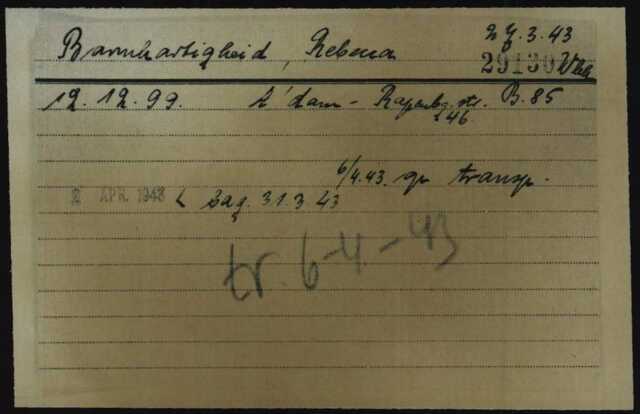 Barmhartigheid, Rebecca 27.3.43
29130 Vha
12.12.99. A'dam - Rapenbg. str. B. 85
46
6/4.43. gr transp.
2 APR. 1943 L Bag. 31.3.43
tr. 6-4-43